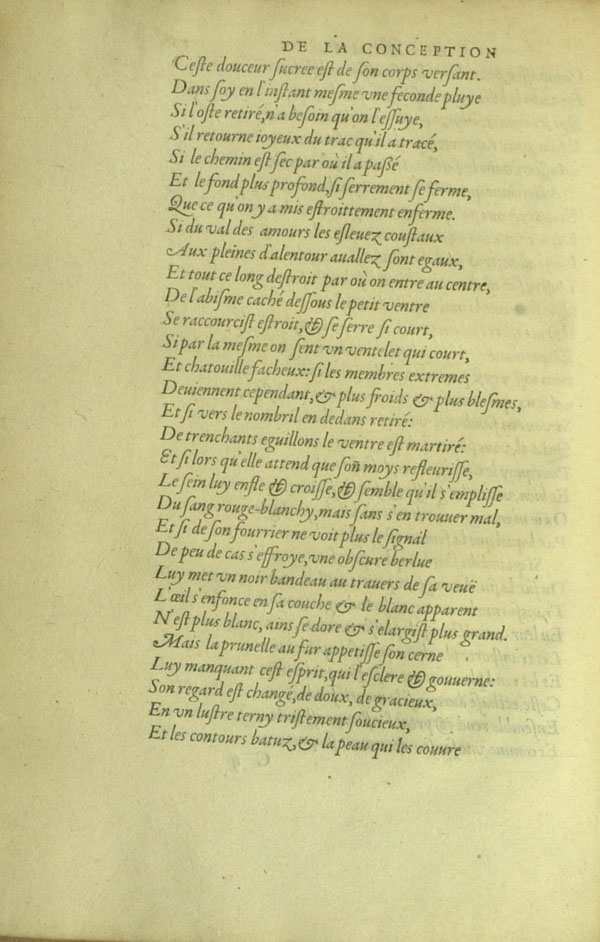 DE LA CONCEPTION
Ceste douceur sucree est de son corps versant.
Dans soy en l'instant mesme vne feconde pluye
Si l'oste retiré, n'a besoin qu'on l'essuye,
S'il retourne ioyeux du trac qu'il a tracé,
Si le chemin est sec par où il a passé
Et le fond plus profond, si serrement se ferme,
Que ce qu'on y a mis estroittement enferme.
Si du val des amours les esleuez coustaux
Aux pleines d'alentour auallez sont egaux,
Et tout ce long destroit par où on entre au centre,
De l'abisme caché dessous le petit ventre
Se raccourcist estroit, & se serre si court,
Si par la mesme on sent vn ventelet qui court,
Et chatouille facheux: si les membres extremes
Deuiennent cependant, & plus froids & plus blesmes,
Et si vers le nombril en dedans retiré:
De trenchants eguillons le ventre est martiré:
Et si lors qu'elle attend que son moys refleurisse,
Le sein luy enfle & croisse, & semble qu'il s'emplisse
Du sang rouge-blanchy, mais sans s'en trouuer mal,
Et si de son fourrier ne voit plus le signal
De peu de cas s'effroye, vne obscure berlue
Luy met vn noir bandeau au trauers de sa veuë
L'œil s'enfonce en sa couche & le blanc apparent
N'est plus blanc, ains se dore & s'elargist plus grand.
Mais la prunelle au fur appetisse son cerne
Luy manquant cest esprit, qui l'esclere & gouuerne:
Son regard est changé, de doux, de gracieux,
En vn lustre terny tristement soucieux,
Et les contours batuz, & la peau qui les couure